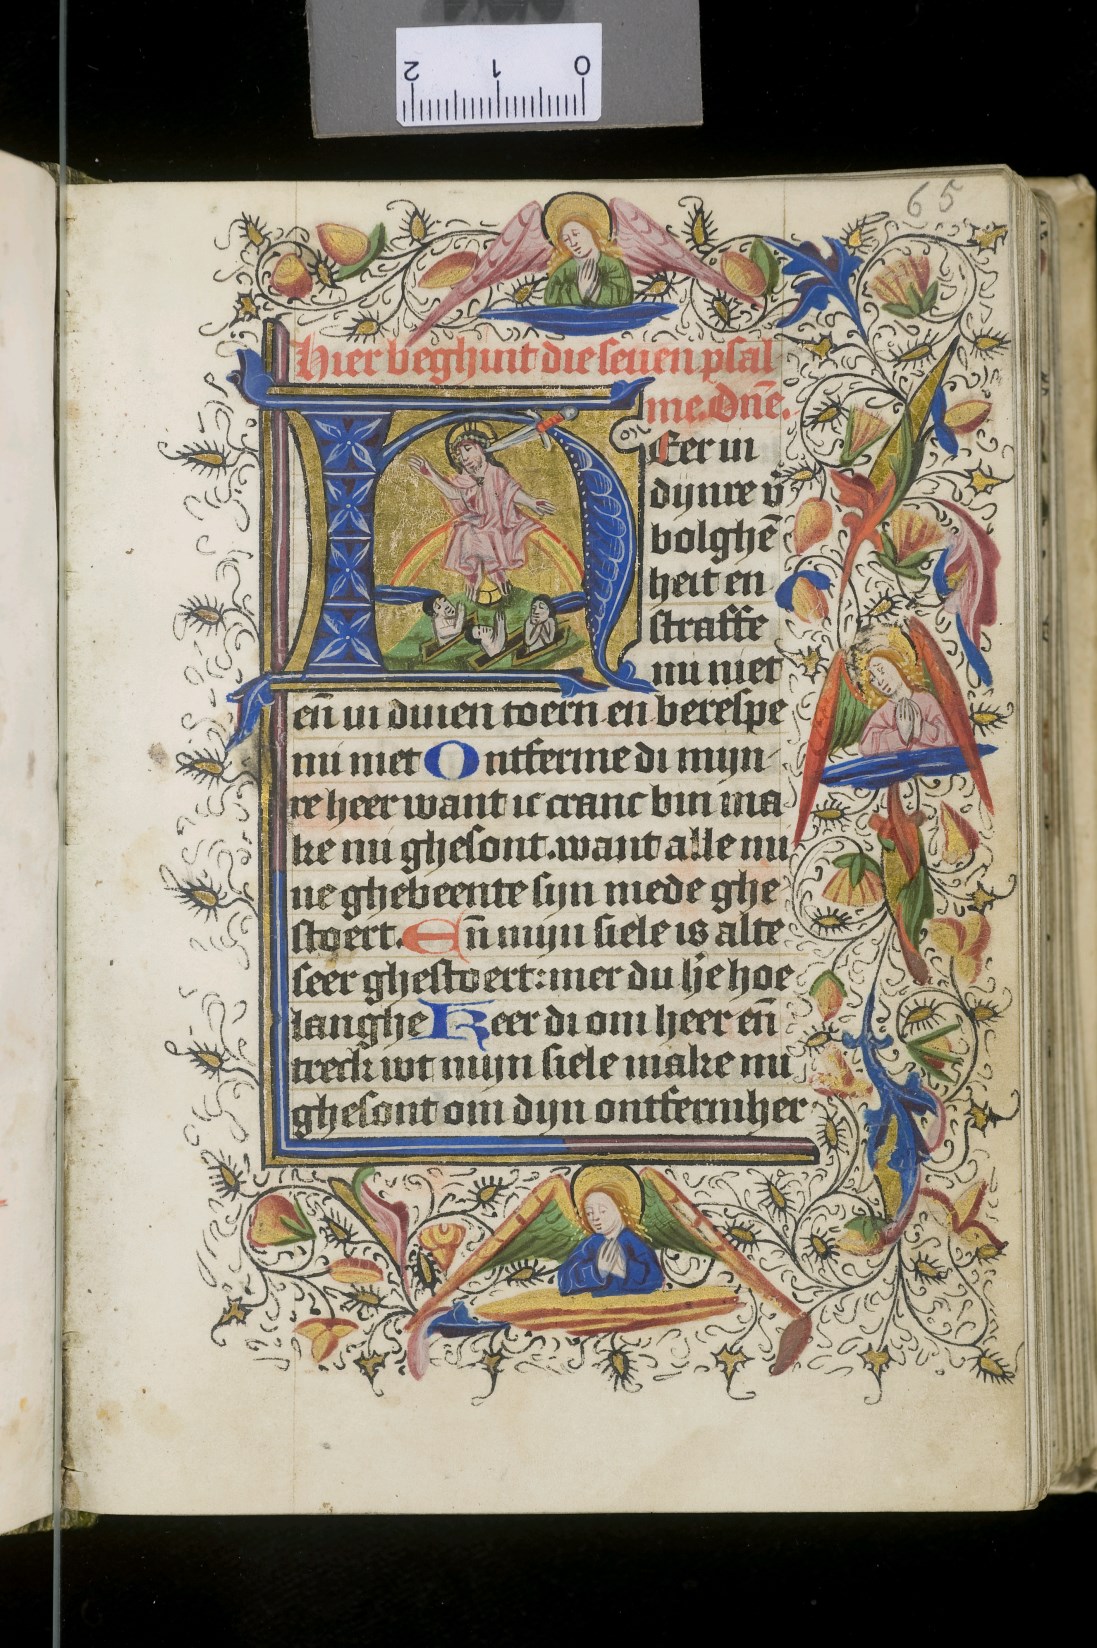 2 1 0
65
Hier beghint die seuen psal
me. Dn̄e.
HEer in
dijnre v̄
bolghē
heit en
straffe
mi niet
en̄ in dinen toern en berespe
mi niet Ontferme di mijn
re heer want ic cranc bin ma
ke mi ghesont. want alle mi
ne ghebeente sijn mede ghe
stoert. En̄ mijn siele is alte
seer ghestoert: mer du hr̄e hoe
langhe Keer di om heer en̄
treck wt mijn siele make mi
ghesont om dijn ontfermher